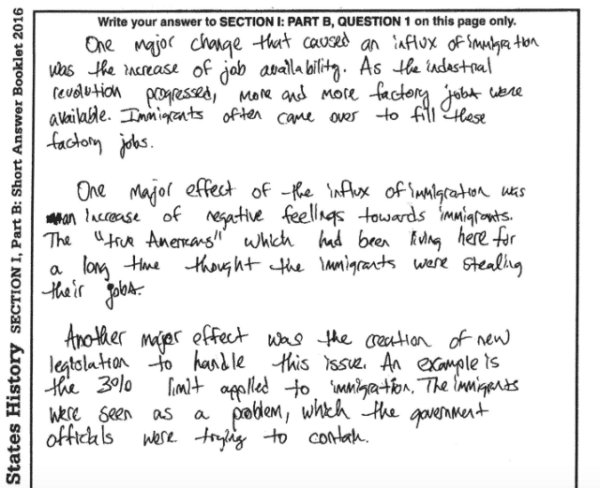 Write your answer to SECTION I: PART B, QUESTION 1 on this page only.
States History SECTION I, Part B: Short Answer Booklet 2016
One major change that caused an influx of immigration
was the increase of job availability. As the industrial
revolution progressed, more and more factory jobs were
available. Immigrants often came over to fill these
factory jobs.
One major effect of the influx of immigration was
an increase of negative feelings towards immigrants.
The "true Americans" which had been living here for
a long time thought the immigrants were stealing
their jobs.
Another major effect was the creation of new
legislation to handle this issue. An example is
the 3% limit applied to immigration. The immigrants
were seen as a problem, which the government
officials were trying to contain.